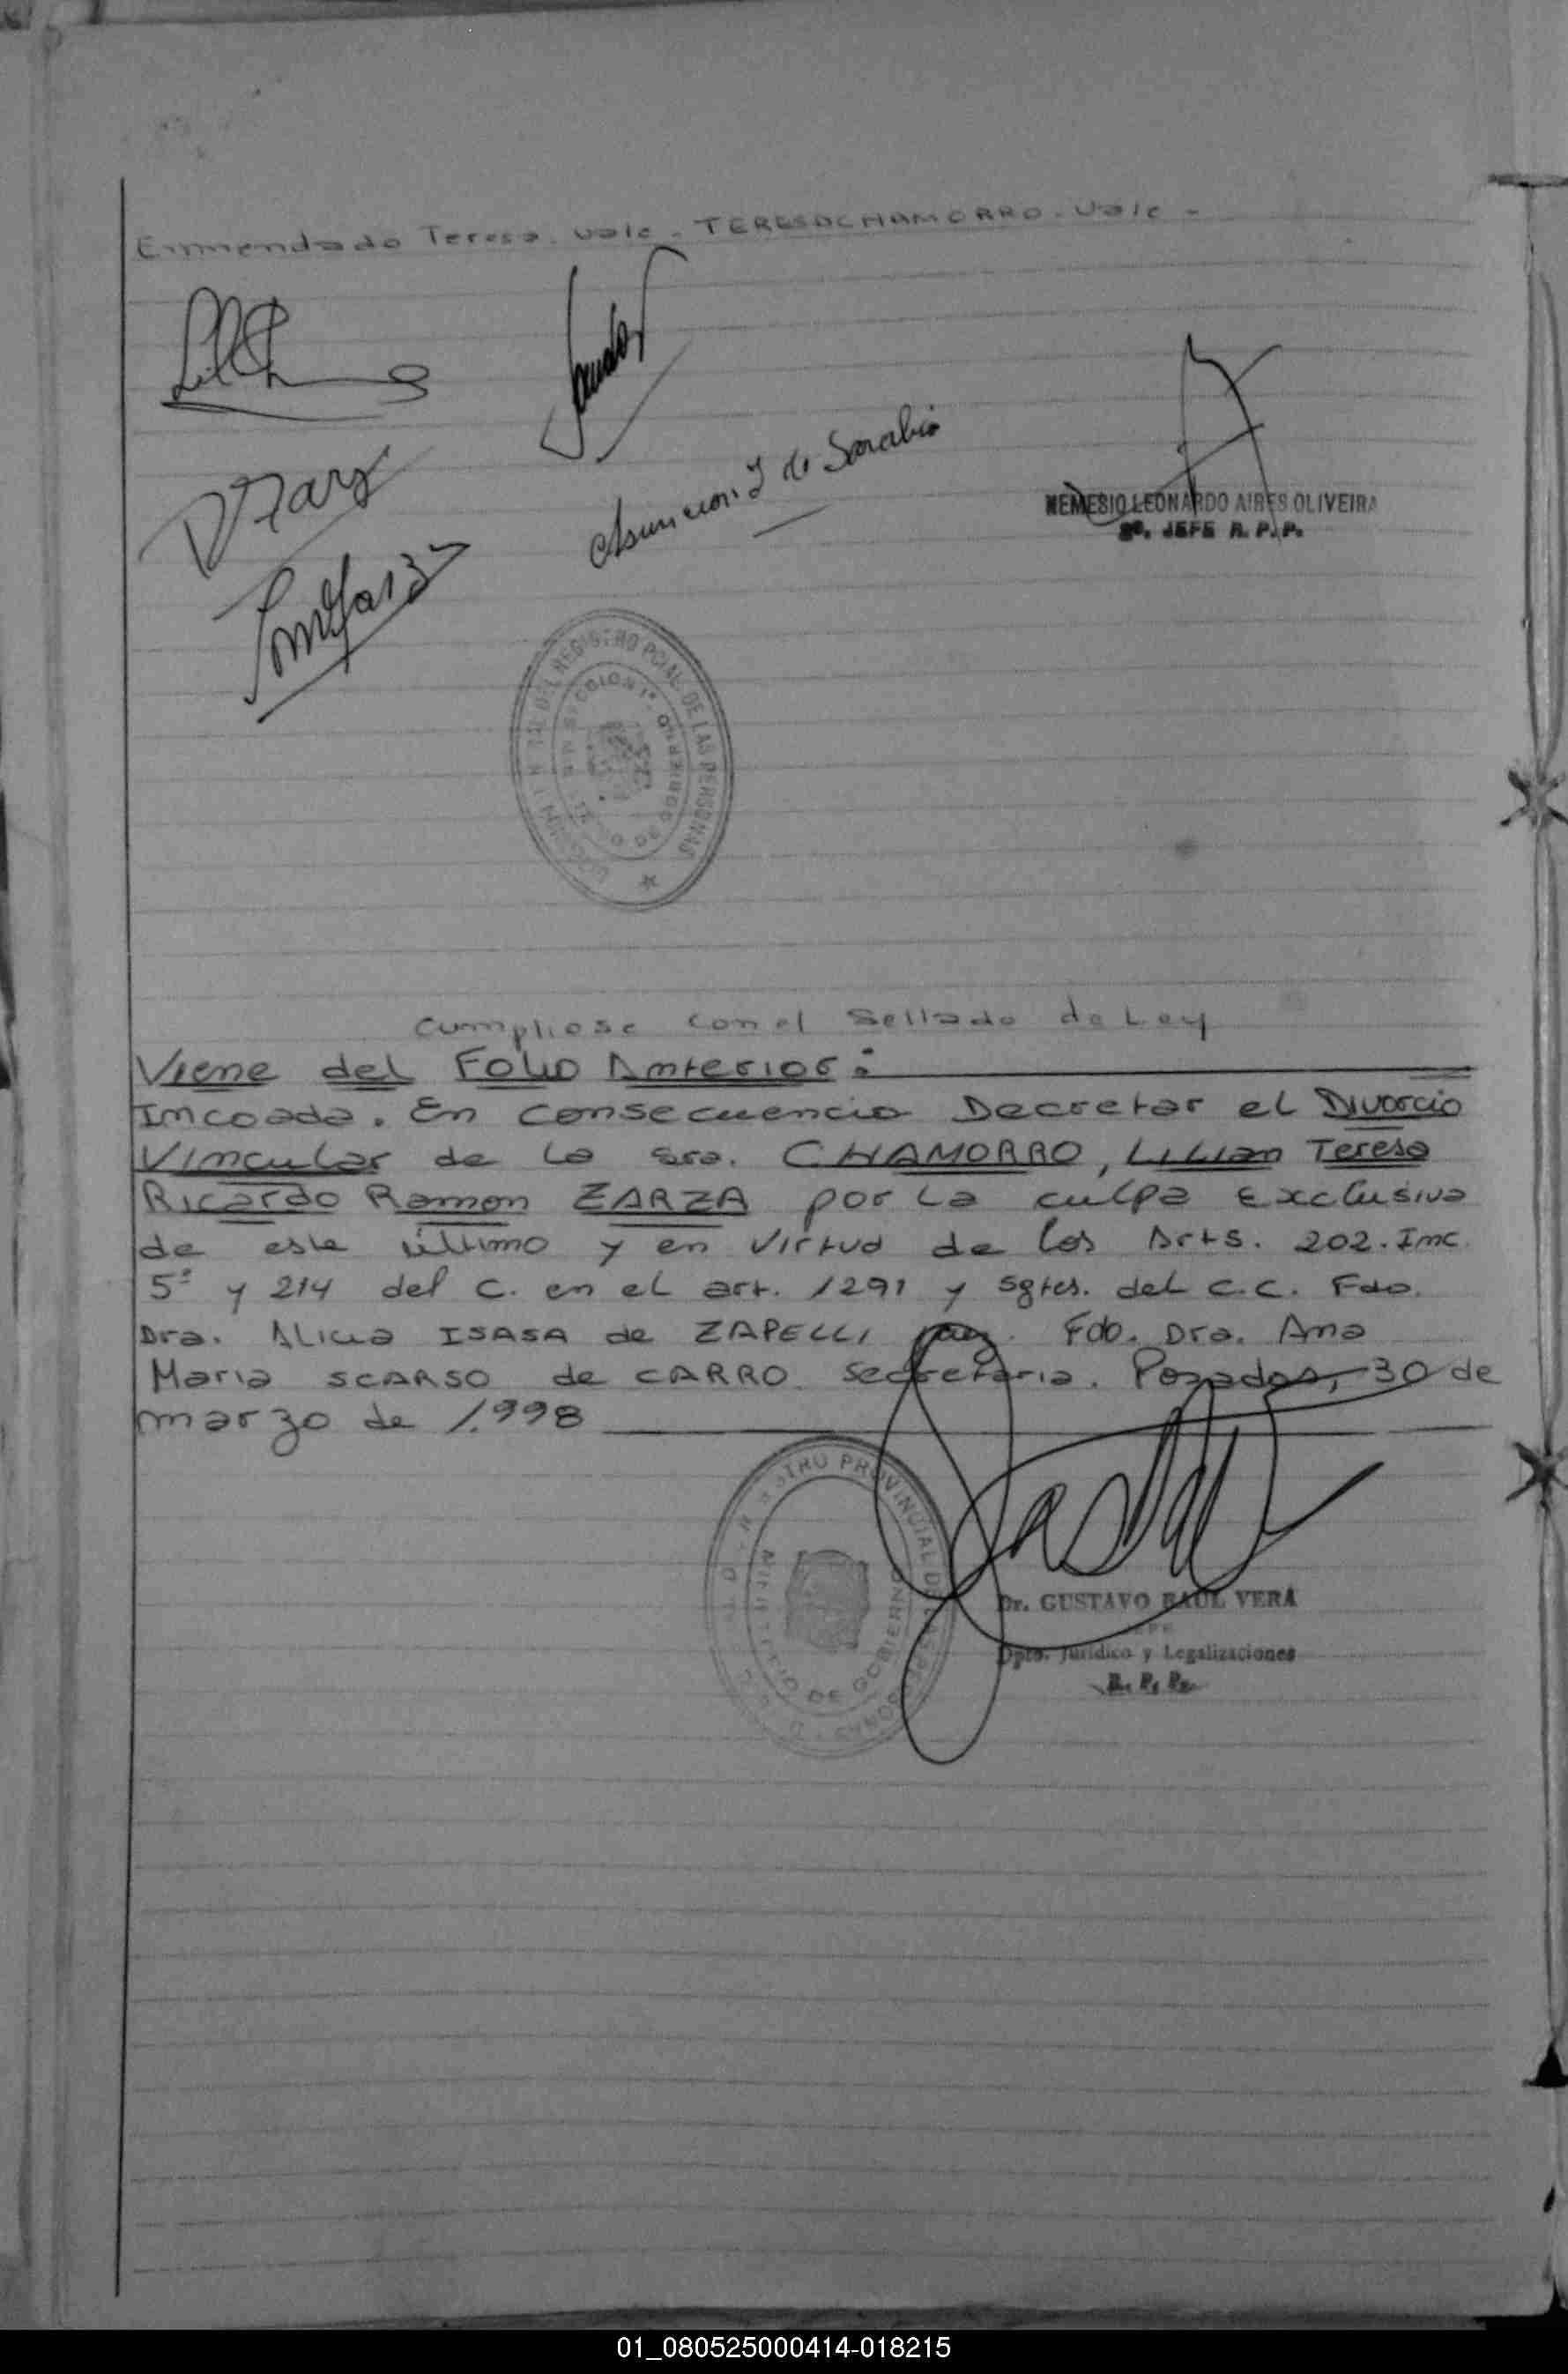 Enmendado Teresa. vale - TERESA CHAMORRO. Vale -
Asuncion I de Sarabia
NEMESIO LEONARDO AIRES OLIVEIRA
JEFE R. P. P.
DEL REGISTRO PCIAL. DE LAS PERSONAS
Cumpliose con el Sellado de Ley
Viene del Folio Anterior:
Incoada. En consecuencia Decretar el Divorcio
Vincular de la Sra. CHAMORRO, Lilian Teresa
Ricardo Ramon ZARZA por la culpa exclusiva
de este último y en virtud de los Arts. 202. Inc.
5º y 214 del C. en el art. 1291 y sgtes. del C.C. Fdo.
Dra. Alicia ISASA de ZAPELLI juez. Fdo. Dra. Ana
Maria SCARSO de CARRO. Secretaria. Posadas, 30 de
marzo de 1.998
PROVINCIAL DE
DE GOBIERNO
Dr. GUSTAVO RAUL VERA
JEFE
Dpto. Jurídico y Legalizaciones
R. P. P.
01_080525000414-018215